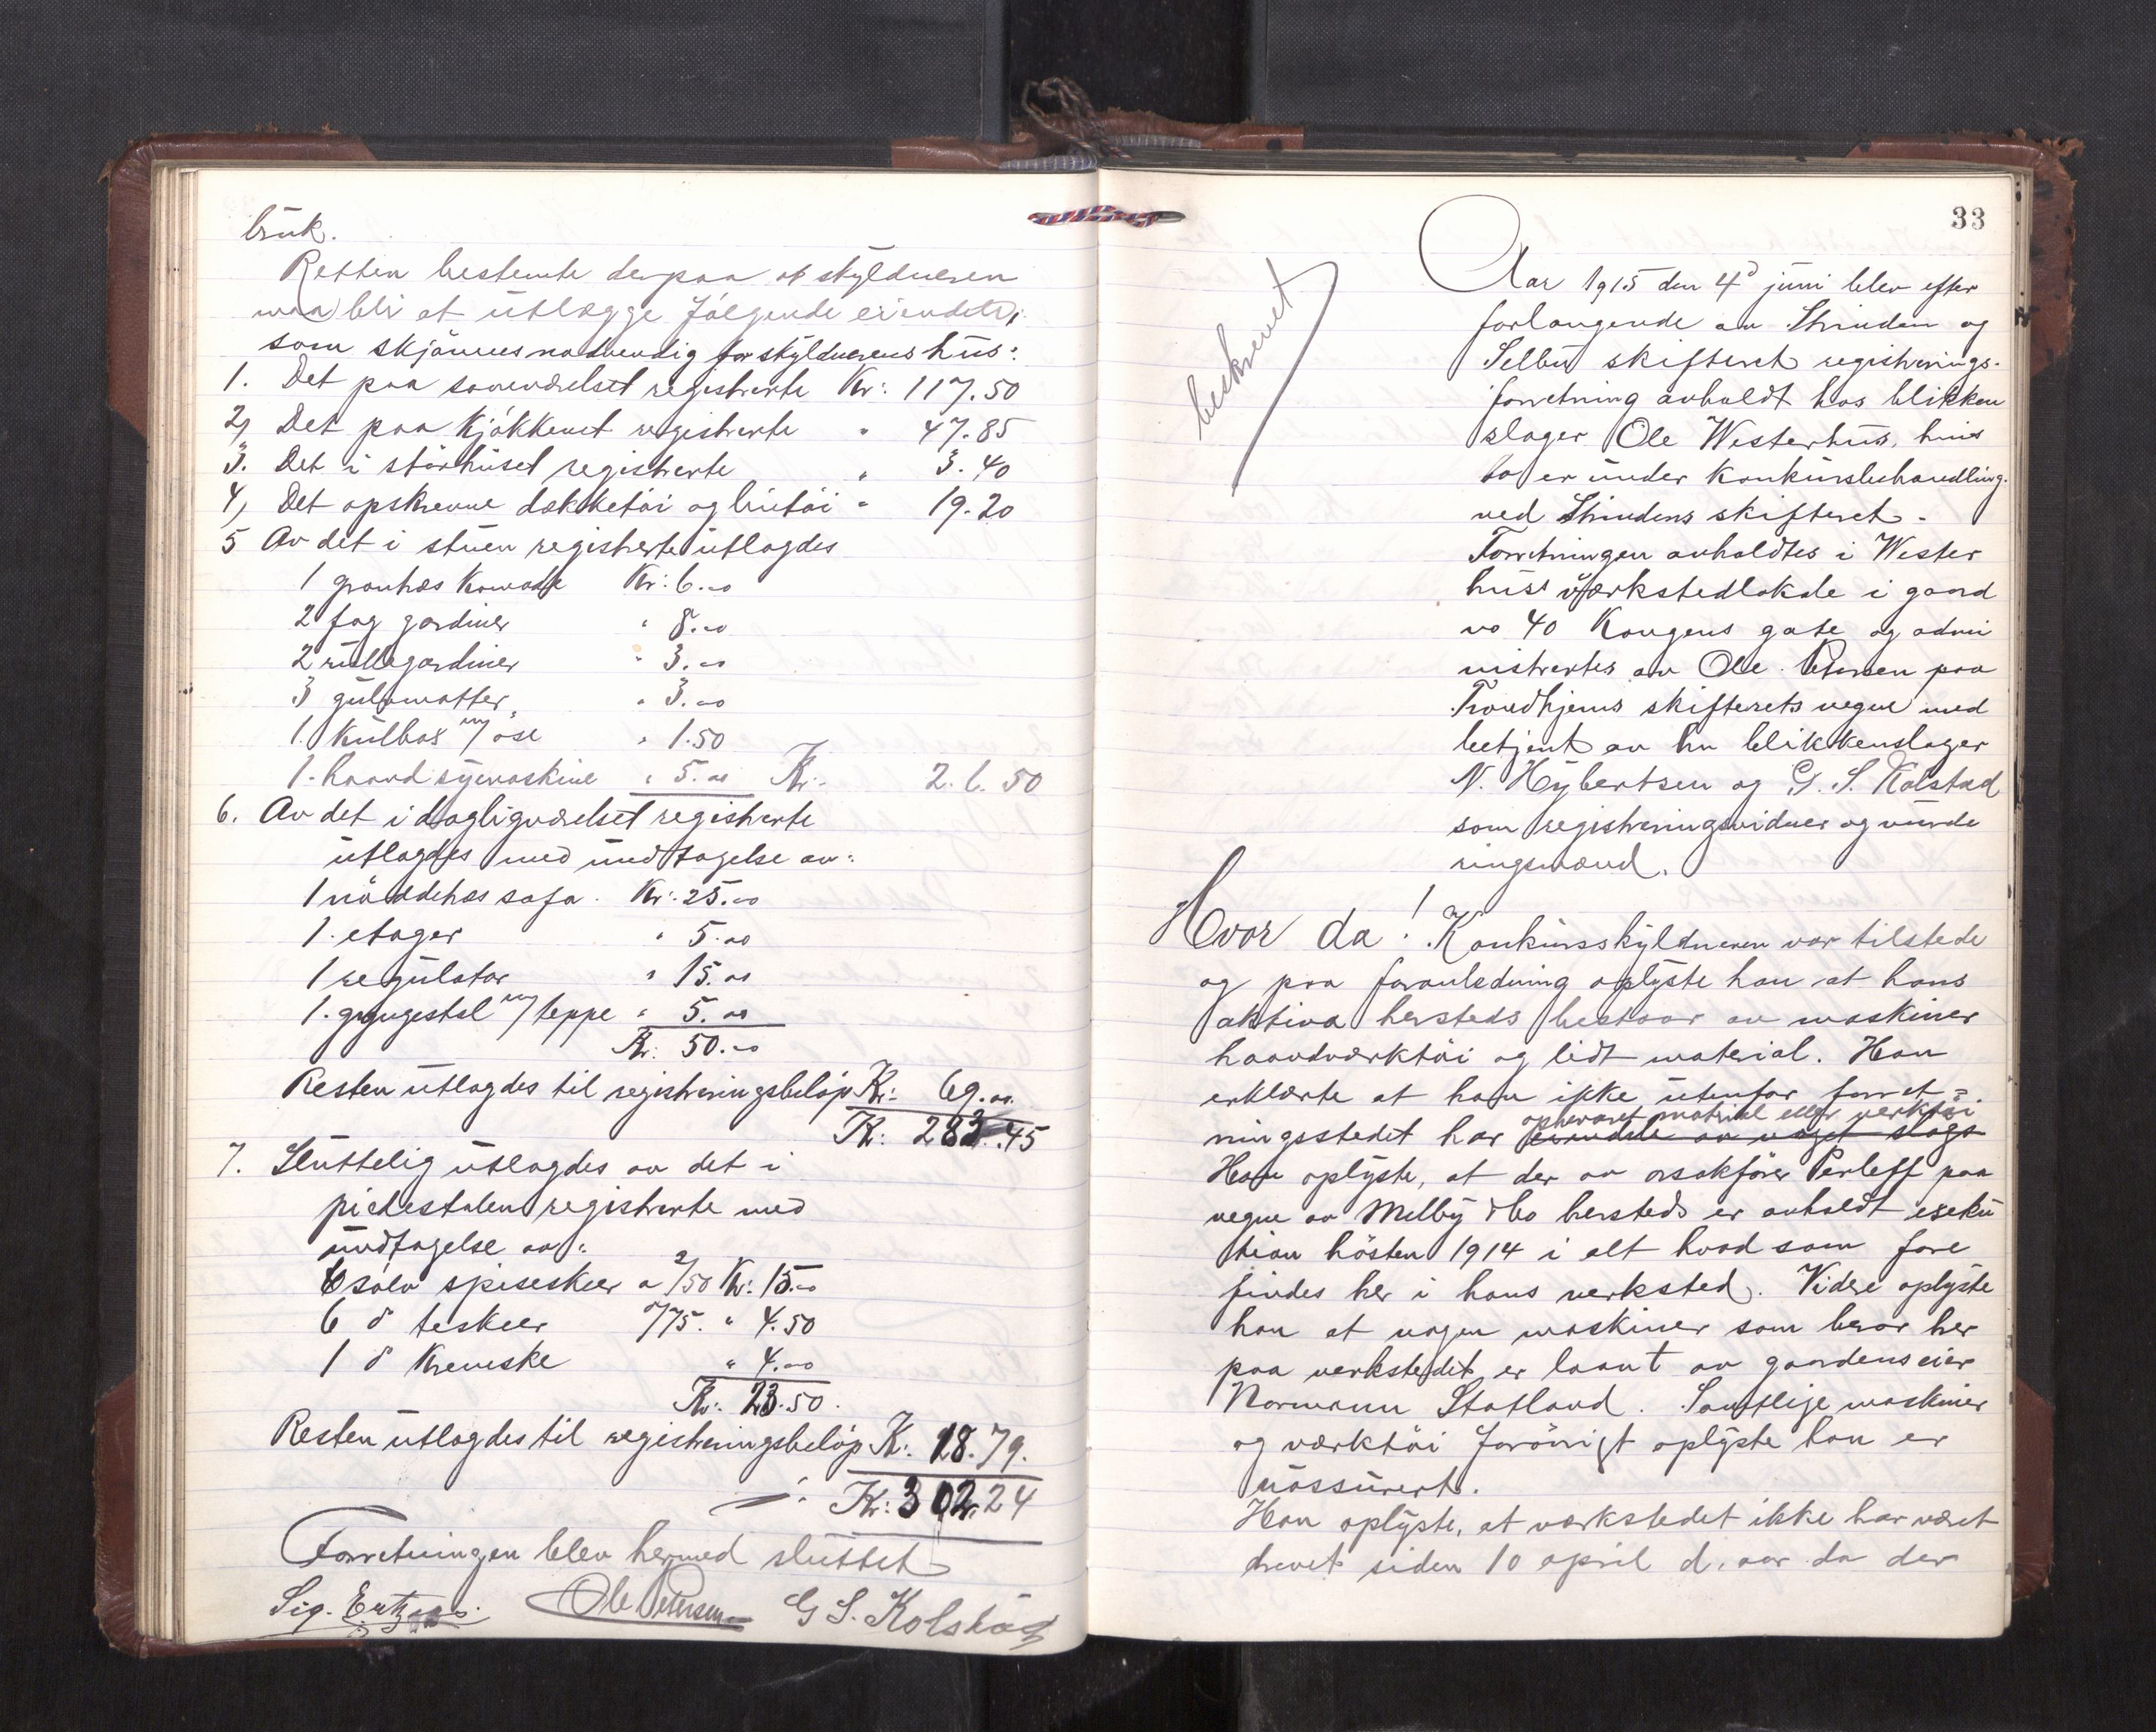 bruk.
Retten bestemte derpaa at skyldneren
maa bli at utlægge følgende eiendele,
som skjønnes nødvendig for skyldnerens hus:
1. Det paa soveværelset registrerte Kr: 117.50
2, Det paa Kjøkkenet registrerte " 47.85
3. Det i störhuset registrerte " 3.40
4, Det opskrevne dækketöi og lintöi " 19.20
5 Av det i stuen registrerte utlagdes
1 granhæs Komode Kr: 6.00
2 fag gardiner " 8.00
2 rullegardiner " 3.00
3 gulvmatter, " 3.00
1. Kulbox m/ öse " 1.50
1. haand symaskine " 5.00 Kr. 26.50
6. Av det i dagligværelset registrerte
utlagdes med undtagelse av:
1 nöddehæs sofa. Kr: 25.00
1. etager " 5.00
1 regulator " 15.00
1. gyngestol m/ teppe " 5.00
Kr: 50.00
Resten utlagdes til registreringsbelöp Kr: 69.00
Kr: 283.45
7. Sluttelig utlagdes av det i
pidestalen registrerte med
undtagelse av:
6 sölv spiseskeer a 2/50 Kr: 15.00
6 d teskeer 775. " 4.50
1 d Kremske " 4.00
Kr: 23.50.
Resten utlagdes til registreringsbelöp K: 18.79.
Kr: 302.24
Forretningen blev hermed sluttet
Sig. Ole Petersen G S. Kolstad
33
beskrevet
Aar 1915 den 4d juni blev efter
forlangende av Strinden og
Selbu skifteret registrerings-
forretning avholdt hos blikken
slager Ole Westerhus, hvis
bo er under Konkursbehandling.
ved Strindens skifteret.
Forretningen avholdtes i Wester
hus' værkstedlokale i gaard
no 40 Kongens gate og admi
nistrertes av Ole Petersen paa
Trondhjems skifterets vegne med
betjent av hr blikkenslager
N. Hybertsen og G. S. Kolstad
som registreringsvidner og vurde
ringsmænd.
Hvor da! Konkursskyldneren var tilstede
og paa foranledning oplyste han at hans
aktiva hersteds bestaar av maskiner
haandværktöi og lidt material. Han
erklærte at han ikke utenfor forret=
opbevaret material eller verktöi
ningsstedet har eiendele av noget slags
Han oplyste, at der av orsakförer Perleff paa
vegne av Melby & Co hersteds er avholdt exeku
tion hösten 1914 i alt hvad som fore
findes her i hans verksted. Videre oplyste
han at nogen maskiner som beror her
paa verkstedet er laant av gaardens eier
Normann Statland. Samtlige maskiner
og værktöi forövrigt oplyste han er
uassurert.
Han oplyste, at værkstedet ikke har været
drevet siden 10 april d. aar da der